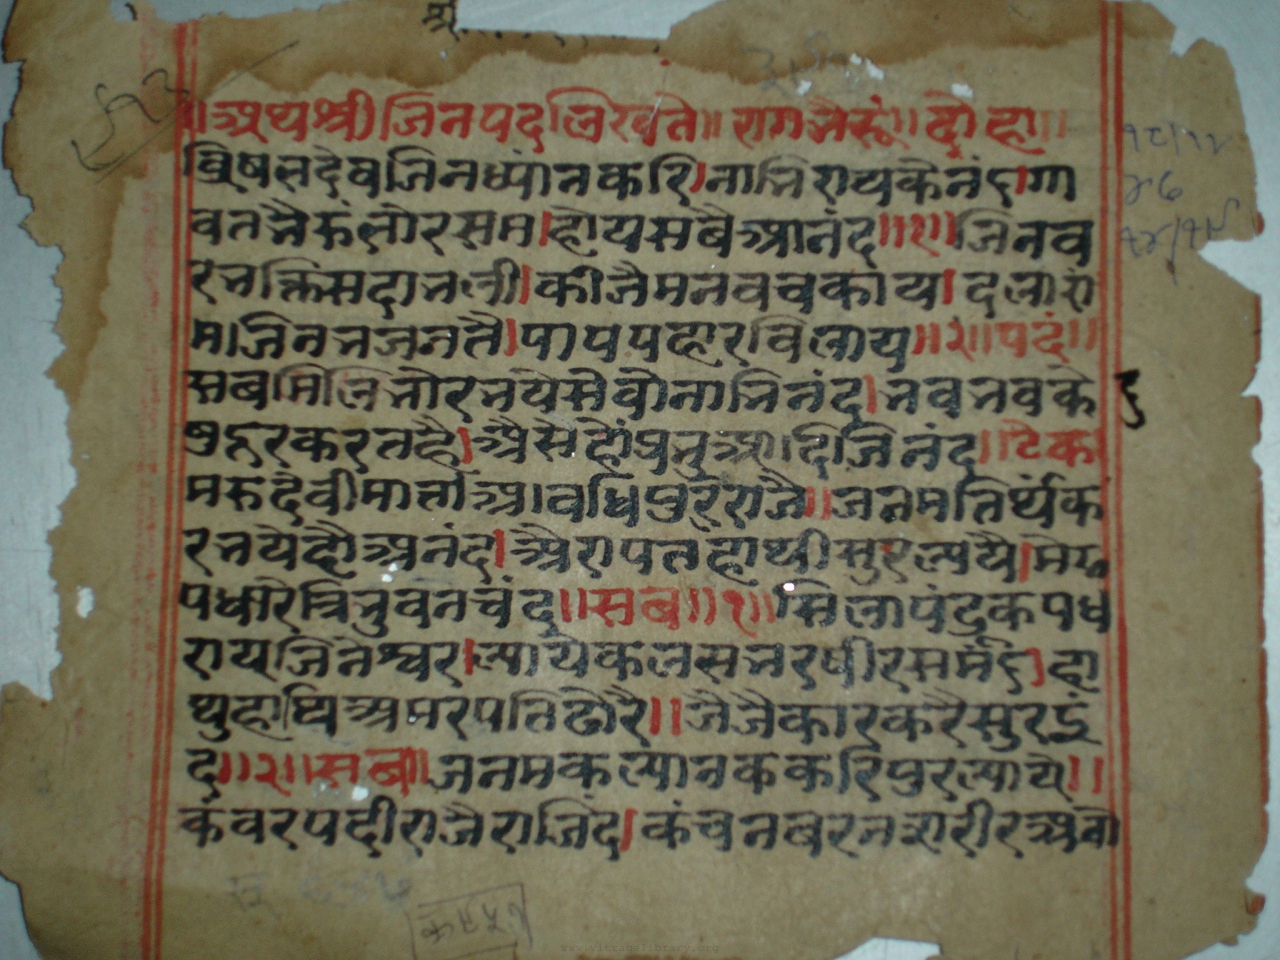 ॥अथ श्री जिन पद लिख्यंते॥ राग भैरूं॥ दोहा॥
व्रिषभदेव जिन ध्यांन करि।नाभिराय के नंद।गा
वत भैरूं भोर सम।होय सबै आनंद॥१॥जिनव
र भक्ति सदा भली।कीजै मन वच काय। दलारा
म।जिन भजन तै।पाप पहार विलाय॥२॥पदं॥
सब मिलि भोर भये सेवो नाभिनंद।भव भव के
दुहर करत है।अैसे हो प्रभु आदि जिनंद।टेक
मरुदेवी माता अवधिपुर राजै॥जनम तिर्थंक
र भये हौ अनंद।अैरापत हाथी सुर ल्यये।मेरु
पधारे त्रिभुवन चंद॥सब॥१॥सिला पंडुक पध
राय जिनेश्वर।ल्याये कलस भर षीर समंद।हा
थुहाथि अमरपति ढोरै॥जै जै कार करै सुर इं
द॥२॥सब॥जनम कल्यानक करि पुर ल्याये॥
कंवर पदी राजै राजिंद।कंचन बरन शरीर अवो
www.vitragelibrary.org